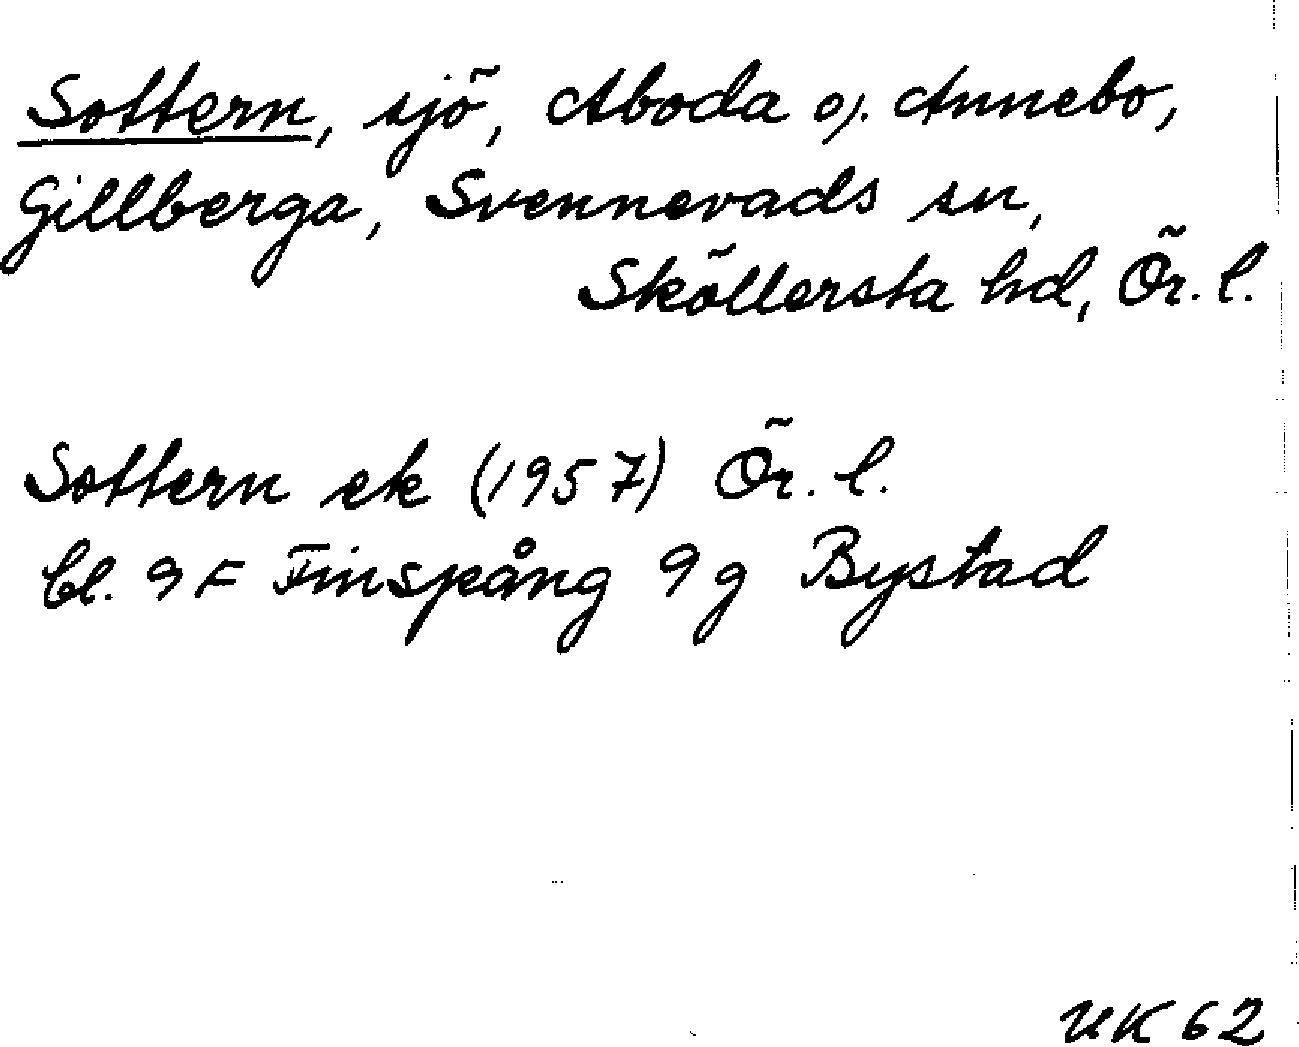 Sottern, sjö, Aboda o). Annebo,
Gillberga, Svennevads sn,
Sköllersta hd, Ör. l.
Sottern ek (1957) Ör. l.
bl. 9F Finspång 9g Bystad
UK 62